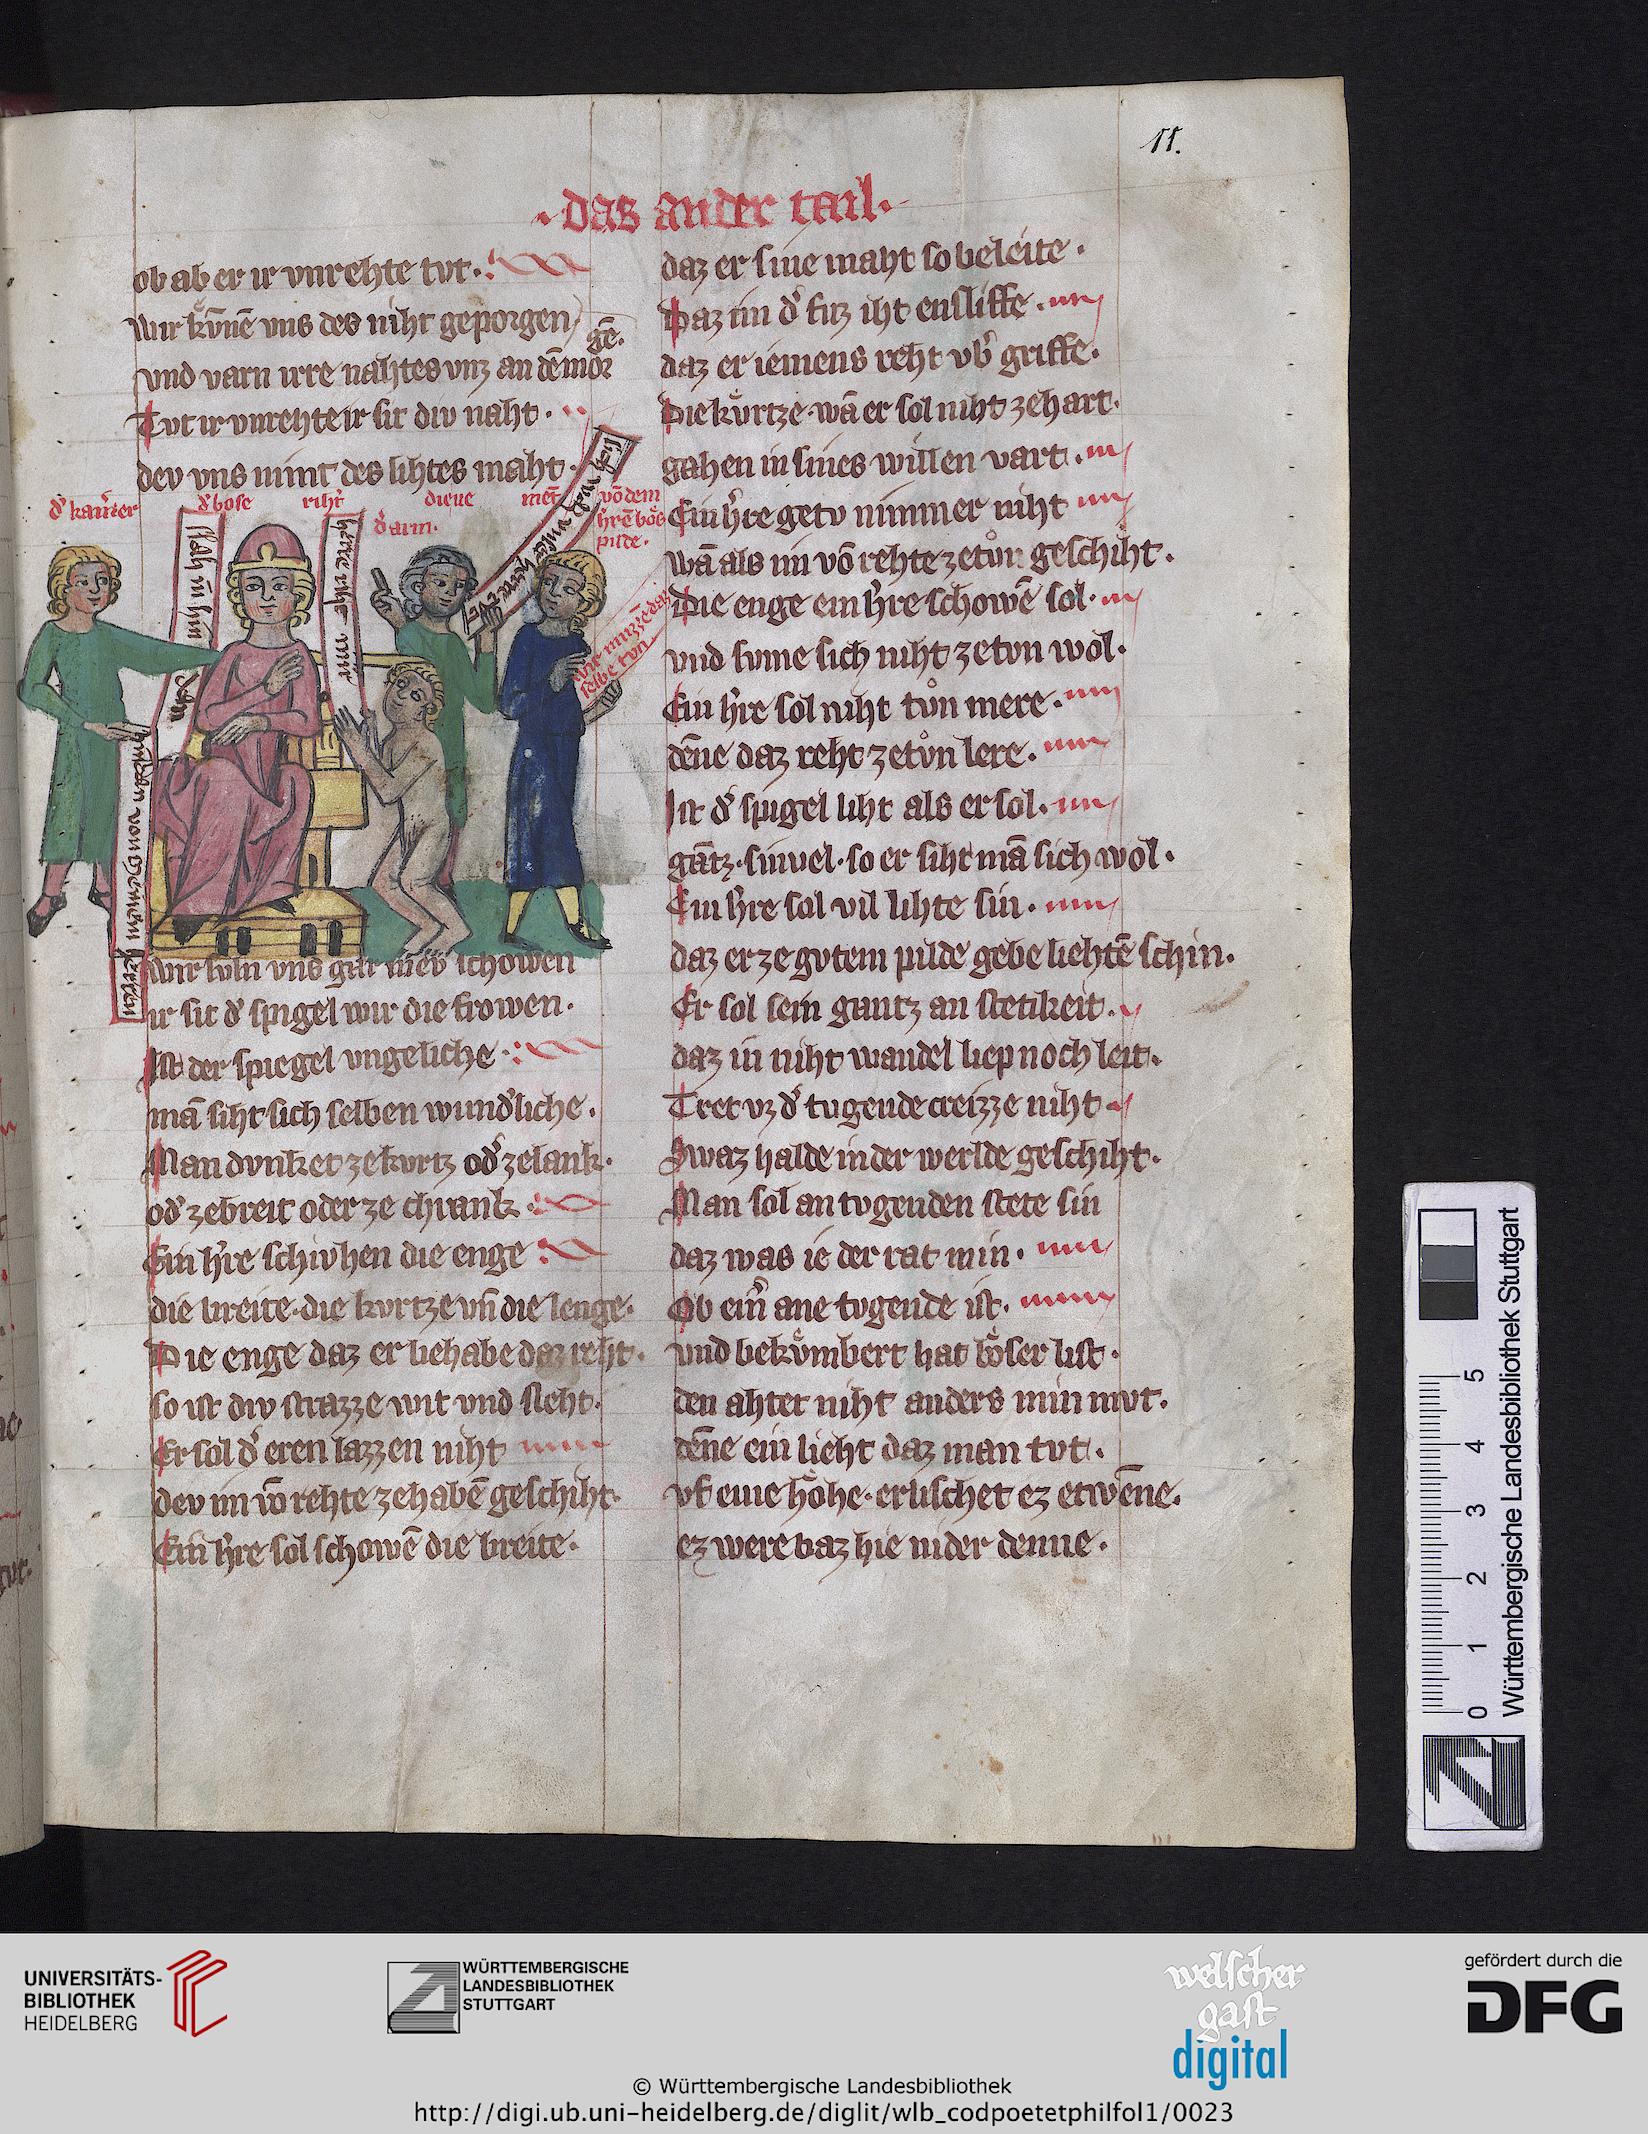 11.
·das ander tail·
ob ab er ir vnrehte tvt·
wir kv̊nē vns des niht geporgen
gē.
vnd varn irre nahtes vnz an dē mor
Tvt ir vnrehte ir sit div naht·
dev vns nimt des lihtes maht·
d' kam̄rer
d' bose riht'
d' arm·
diene
vō dem
h're bôs
pilde·
slah in hin
herre rihte mir
wir mvzzē daz
selbe tvn
wir svln vns gar niev schowen
ir sit d' spigel wir die frowen·
Ist der spiegel vngeliche·
mā siht sich selben wund'liche·
Man dvnket ze kvrtz od' ze lank·
od' ze breit oder ze chrank·
Ein h're schivhen die enge
die breite·die kvrtze vn̄ die lenge·
Die enge daz er behabe daz reht·
so ist div strazze wit vnd sleht·
Er sol d' eren lazzen niht
dev im vō rehte ze habē geschiht·
Ein h're sol schowē die breite·
daz er sine maht so beleite·
Daz im d' fuz iht ensliffe·
daz er iemens reht vb' griffe·
Die kv̊rtze wā er sol niht ze hart·
gahen in sines willen vart·
Ein h're getv nimmer niht
wā als im vō rehte ze tv̊n geschiht·
Die enge ein h're schowē sol·
vnd svme sich niht ze tvn wol·
Ein h're sol niht tv̊n mere·
dēne daz reht ze tv̊n lere·
Ist d' spigel liht als er sol·
gātz·sinuel·so er siht mā sich wol·
Ein h're sol vil lihte sin·
daz er ze gvtem pilde gebe liehtē schin·
Er sol sein gantz an stetikeit·
daz in niht wandel liep noch leit·
Tret vz d' tugende creizze niht
Swaz halde in der werlde geschiht·
Man sol an tvgenden stete sin
daz was ie der rat min·
Ob ein' ane tvgende ist·
vnd bekv̊mbert hat bôser list·
den ahtet niht anders min mvt·
dēne ein lieht daz man tvt·
vf eine hôhe·erlischet ez etwēne·
ez were baz hie nider denne·
0 1 2 3 4 5
Württembergische Landesbibliothek Stuttgart
UNIVERSITÄTS-
BIBLIOTHEK
HEIDELBERG
WÜRTTEMBERGISCHE
LANDESBIBLIOTHEK
STUTTGART
welscher
gast
digital
gefördert durch die
DFG
© Württembergische Landesbibliothek
http://digi.ub.uni-heidelberg.de/diglit/wlb_codpoetetphilfol1/0023